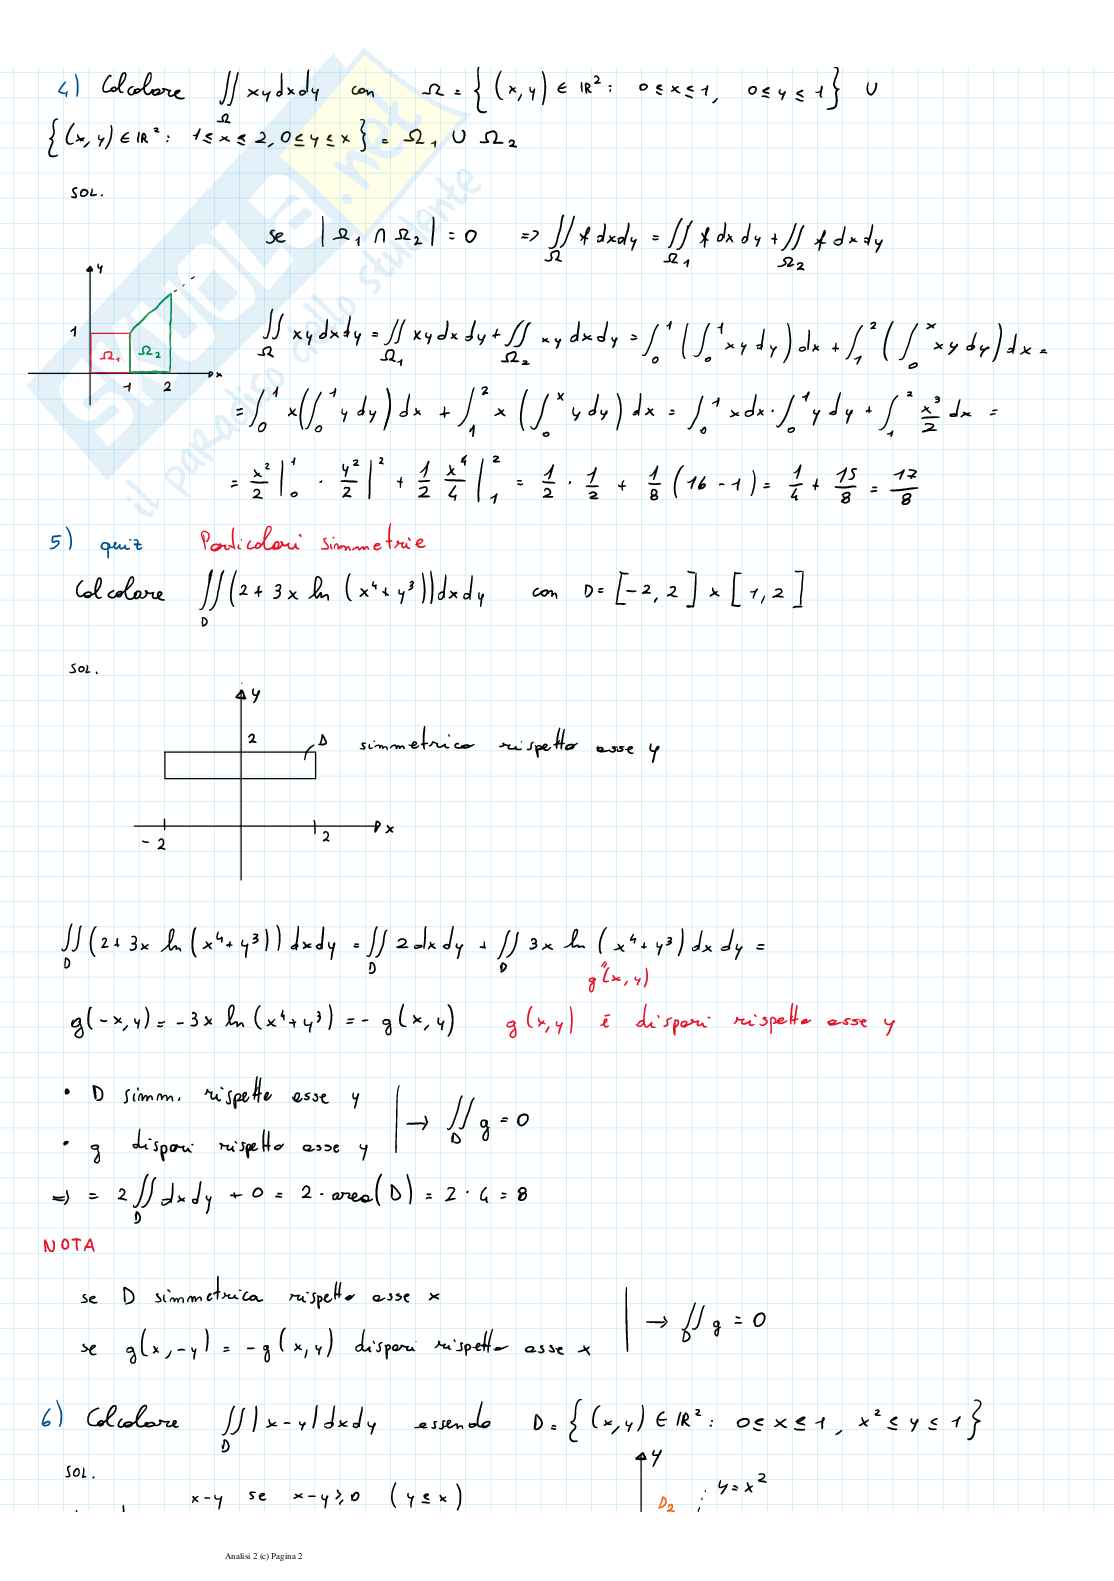 4) Calcolare ∬_Ω xy dxdy con Ω = { (x, y) ∈ ℝ² : 0 ≤ x ≤ 1, 0 ≤ y ≤ 1 } ∪
{ (x, y) ∈ ℝ² : 1 ≤ x ≤ 2, 0 ≤ y ≤ x } = Ω₁ ∪ Ω₂
SOL.
se | Ω₁ ∩ Ω₂ | = 0 => ∬_Ω f dxdy = ∬_Ω₁ f dxdy + ∬_Ω₂ f dxdy
y
1
Ω₁ Ω₂
x
1 2
∬_Ω xy dxdy = ∬_Ω₁ xy dxdy + ∬_Ω₂ xy dxdy = ∫_0^1 ( ∫_0^1 xy dy ) dx + ∫_1^2 ( ∫_0^x xy dy ) dx =
= ∫_0^1 x ( ∫_0^1 y dy ) dx + ∫_1^2 x ( ∫_0^x y dy ) dx = ∫_0^1 x dx · ∫_0^1 y dy + ∫_1^2 x³/2 dx =
= x²/2 |_0^1 · y²/2 |^2 + 1/2 x⁴/4 |_1^2 = 1/2 · 1/2 + 1/8 (16 - 1) = 1/4 + 15/8 = 17/8
5) quiz Particolari simmetrie
Calcolare ∬_D (2 + 3x ln (x⁴ + y³)) dxdy con D = [-2, 2] × [1, 2]
SOL.
y
2
D simmetrico rispetto asse y
x
- 2 2
∬_D (2 + 3x ln (x⁴ + y³)) dxdy = ∬_D 2 dxdy + ∬_D 3x ln (x⁴ + y³) dxdy =
g"(x, y)
g(-x, y) = -3x ln (x⁴ + y³) = - g(x, y) g(x, y) è dispari rispetto asse y
• D simm. rispetto asse y
→ ∬_D g = 0
• g dispari rispetto asse y
=> = 2 ∬_D dxdy + 0 = 2 · area(D) = 2 · 4 = 8
NOTA
se D simmetrica rispetto asse x
→ ∬_D g = 0
se g(x, -y) = -g(x, y) dispari rispetto asse x
6) Calcolare ∬_D |x - y| dxdy essendo D = { (x, y) ∈ ℝ² : 0 ≤ x ≤ 1, x² ≤ y ≤ 1 }
SOL.
y
y = x²
x-y se x-y ≥ 0 (y ≤ x)
D₂
Analisi 2 (c) Pagina 2
SKUOLA.net
il paradiso dello studente